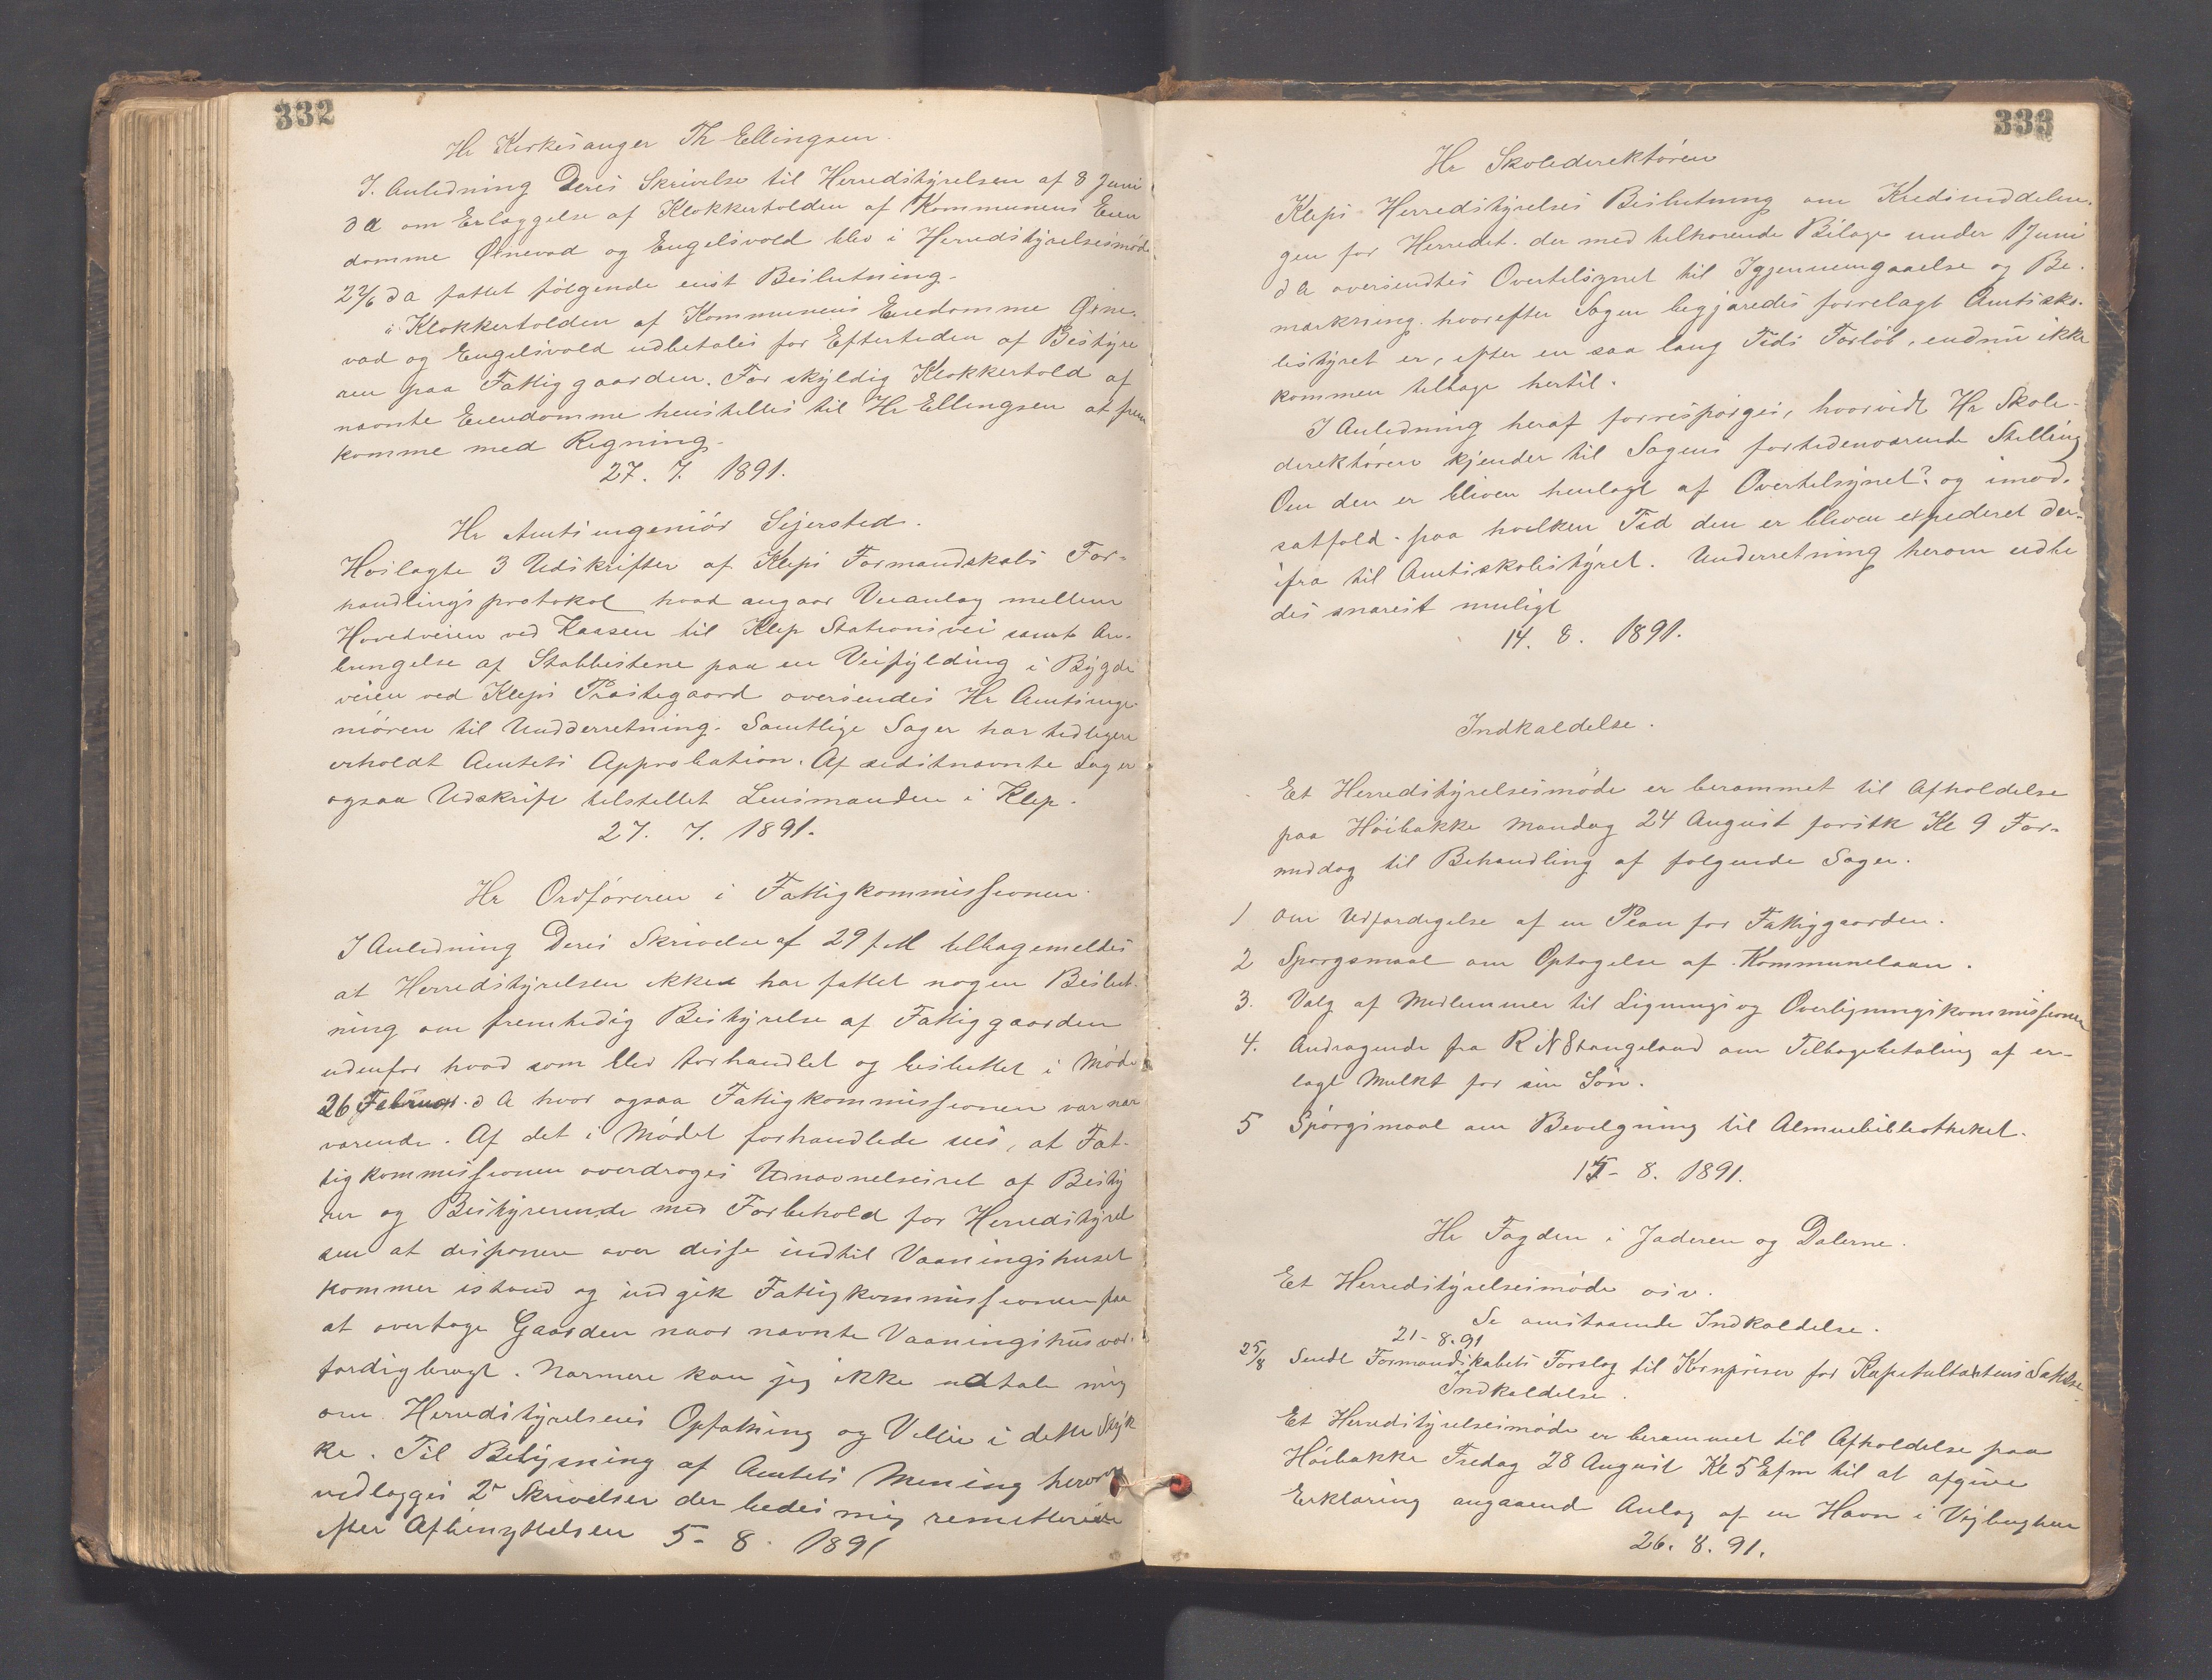 332
Hr Kirkesanger Th Ellingsen.
I. Anledning Deres Skrivelse til Herredstyrelsen af 8 Juni
d A om Erlæggelse af Klokkertolden af Kommunens Eien
domme Ørnevad og Engelsvold blev i Herredstyrelsesmöde
22/6 d A fattet følgende enst Beslutning.
"Klokkertolden af Kommunens Eiendomme Ørne-
vad og Engelsvold udbetales for Eftertiden af Bestyre
ren paa Fattiggaarden. For skyldig Klokkertold af
nævnte Eiendomme henstilles til Hr Ellingsen at frem
komme med Regning.
27. 7. 1891.
Hr Amtsingeniör Sejersted.
Hoslagte 3 Udskrifter af Kleps Formandskabs For-
handlingsprotokol hvad angaar Veianlæg mellem
Hovedveien ved Kaasen til Klep Stationsvei samt An-
bringelse af Stabbestene paa en Veifylding i Bygde
veien ved Kleps Præstegaard oversendes Hr Amtsinge
niören til Undderretning. Samtlige Sager har tidligere
erholdt Amtets Approbation. Af sidstnævnte Sag er
ogsaa Udskrift tilstillet Lensmanden i Klep.
27. 7. 1891.
Hr Ordföreren i Fattigkommissionen.
I Anledning Deres Skrivelse af 29 f M tilbagemeldes
at Herredstyrelsen ikke har fattet nogen Beslut-
ning om fremtidig Bestyrelse af Fattiggaarden
udenfor hvad som blev forhandlet og besluttet i Möde
26 Februar d A hvor ogsaa Fattigkommissionen var nær
værende. Af det i Mödet forhandlede sees, at Fat-
tigkommissionen overdroges Udnævnelsesret af Besty
rer og Bestyrerinde med Forbehold for Herredstyrel
sen at disponere over disse indtil Vaaningshuset
kommer istand og indgik Fattigkommissionen paa
at overtage Gaarden naar nævnte Vaaningshus var
færdigbragt. Nærmere kan jeg ikke udtale mig
om Herredstyrelsens Opfatning og Villie i dette Styk
ke. Til Belysning af Amtets Mening herom
vedlægges 2 Skrivelser der bedes mig remitterede
efter Afbenyttelsen 5- 8. 1891
333
Hr Skoledirektören
Kleps Herredstyrelses Beslutning om Kredsinddelin-
gen for Herredet. der med tilhørende Bilage under 1 Juni
d A oversendtes Overtilsynet til Igjennemgaaelse og Be-
mærkning. hvorefter Sagen begjæredes forelagt Amtssko-
lestyret er, efter en saa lang Tids Forløb, endnu ikke
kommen tilbage hertil.
I Anledning heraf forrespörges, hvorvidt Hr Skole-
direktören kjender til Sagens fortidenværende Stilling
Om den er bleven henlagt af Overtilsynet? og imod-
satfald. paa hvilken Tid den er bleven expederet der-
ifra til Amtsskolestyret. Underretning herom udbe
des snarest muligt
14. 8. 1891.
Indkaldelse.
Et Herredstyrelsesmöde er berammet til Afholdelse
paa Höibakke Mandag 24 August förstk Kl 9 For-
middag til Behandling af følgende Sager.
1 Om Udfærdigelse af en Plan for Fattiggaarden.
2 Spørgsmaal om Optagelse af Kommunelaan.
3. Valg af Medlemmer til Lignings og Overligningskommissionen
4. Andragende fra R N Stangeland om Tilbagebetaling af er-
lagt Mulkt for sin Sön.
5 Spörgsmaal om Bevilgning til Almuebibliotheket.
15- 8. 1891.
Hr Fogden i Jæderen og Dalerne.
Et Herredstyrelsesmöde osv.
Se omstaaende Indkaldelse.
21- 8. 91
25/8 Sendt Formandskabets Forslag til Kornpriser for Kapitultaxtens Sættelse
Indkaldelse.
Et Herredstyrelsesmöde er berammet til Afholdelse paa
Höibakke Fredag 28 August Kl 5 Efm til at afgive
Erklæring angaaende Anlæg af en Havn i Vigbughten
26. 8. 91.